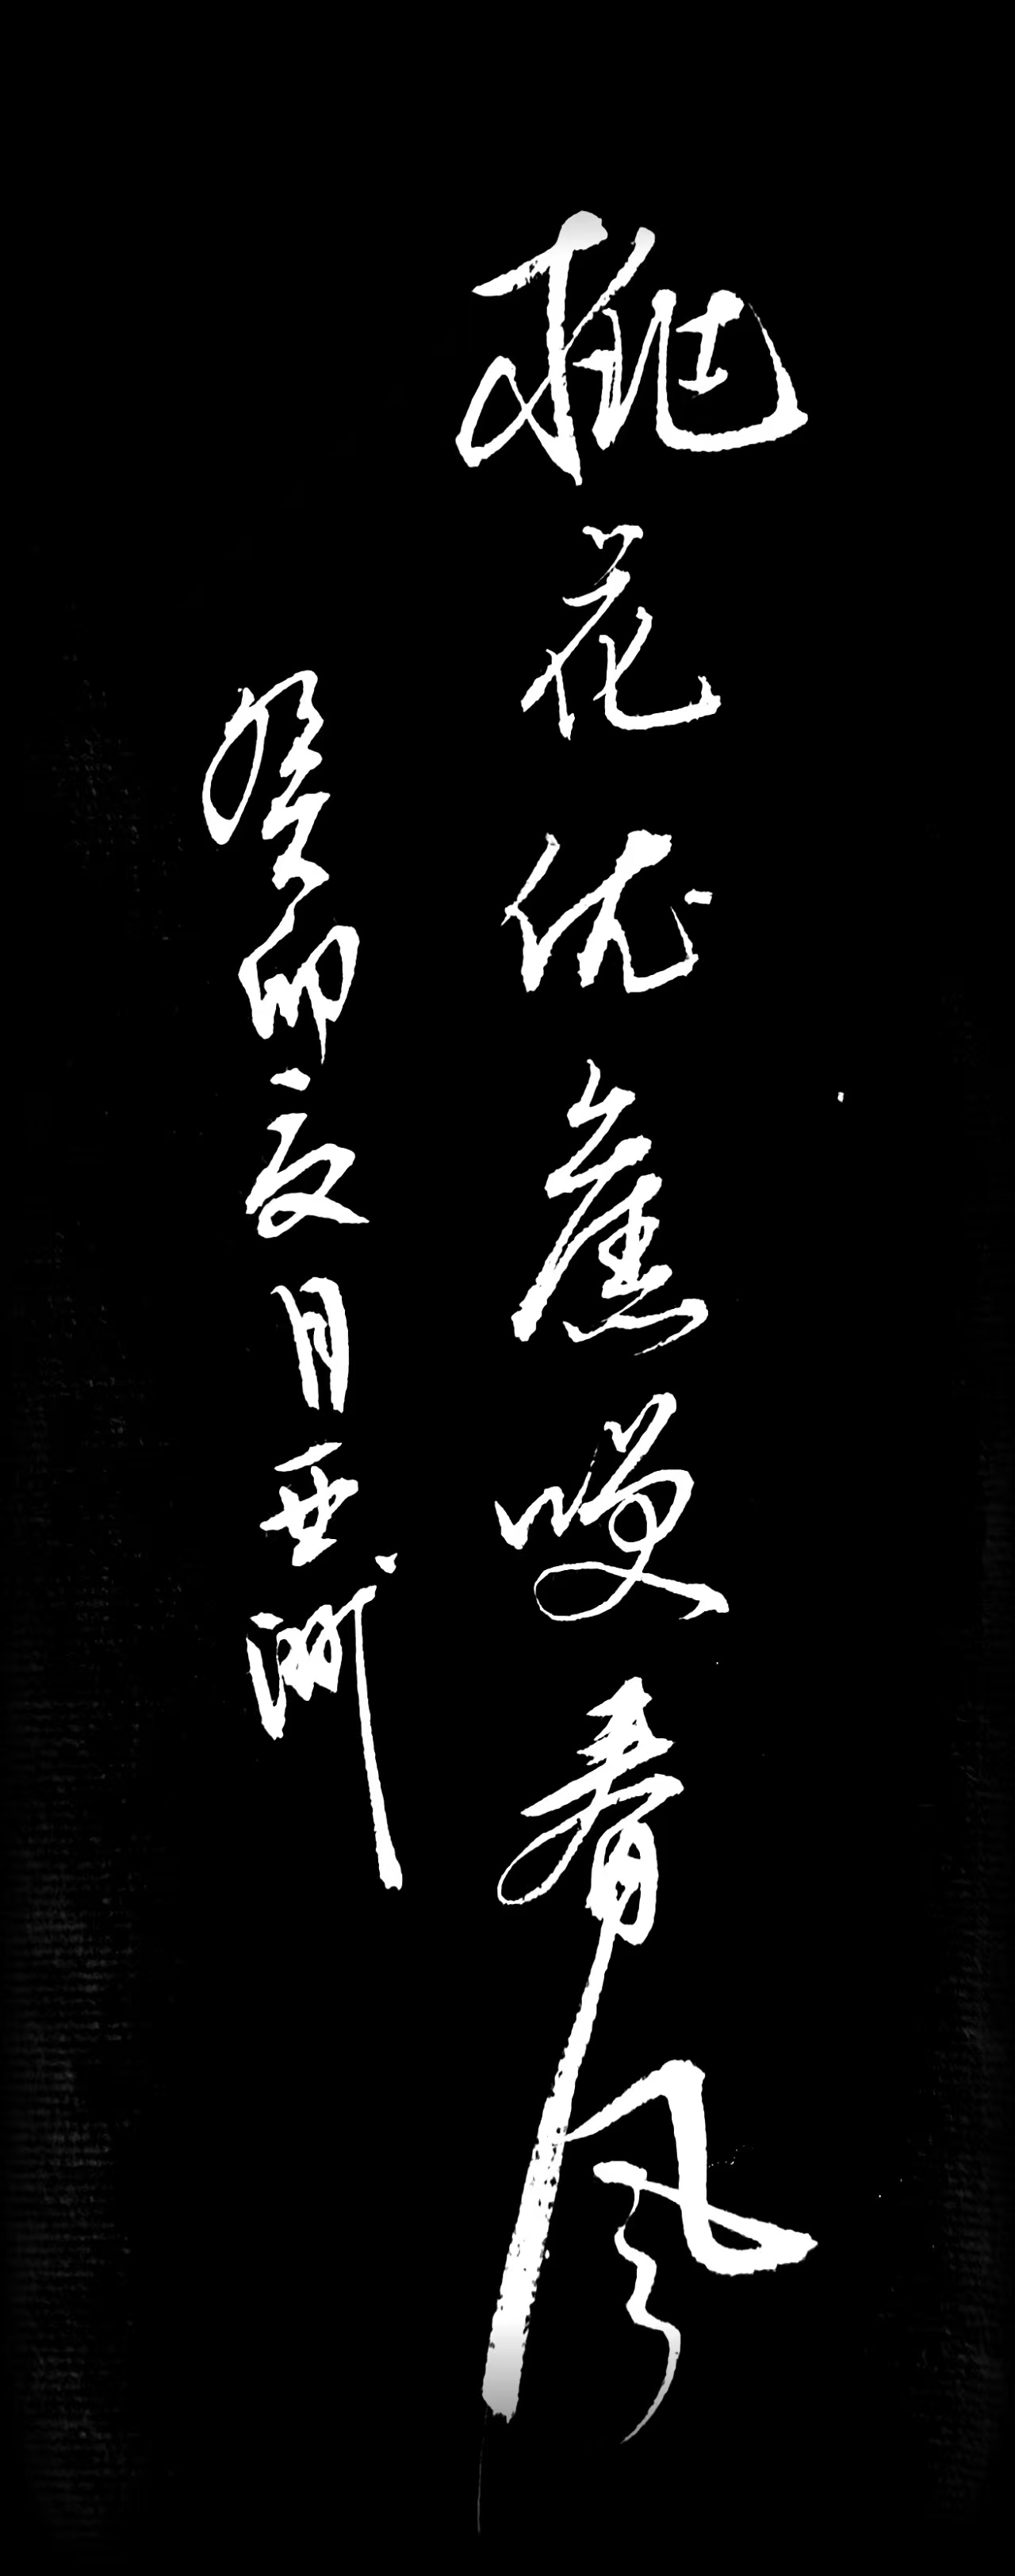 桃花依舊笑春风
癸卯夏月亚洲